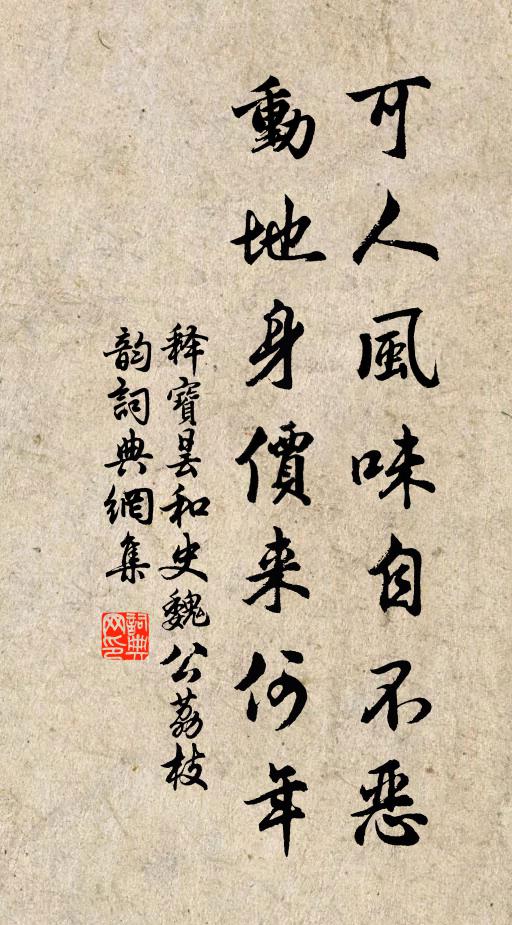 可人風味自不惡
動地身價来何年
釋寶曇和史魏公荔枝
韵詞典網集
詞典网印